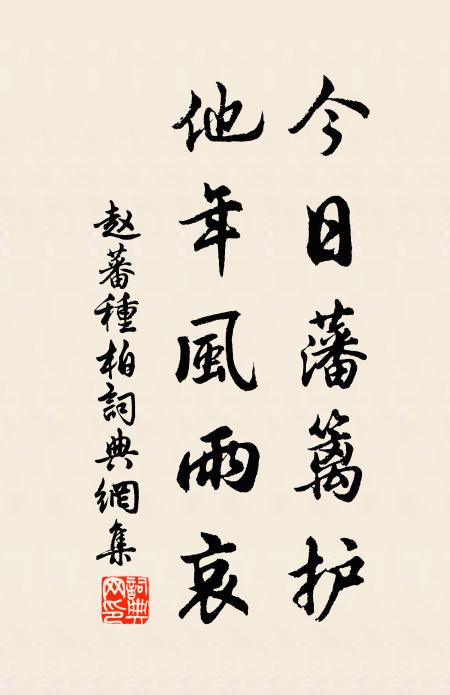 今日藩篱护
他年風雨哀
赵蕃種柏詞典網集
詞典网印